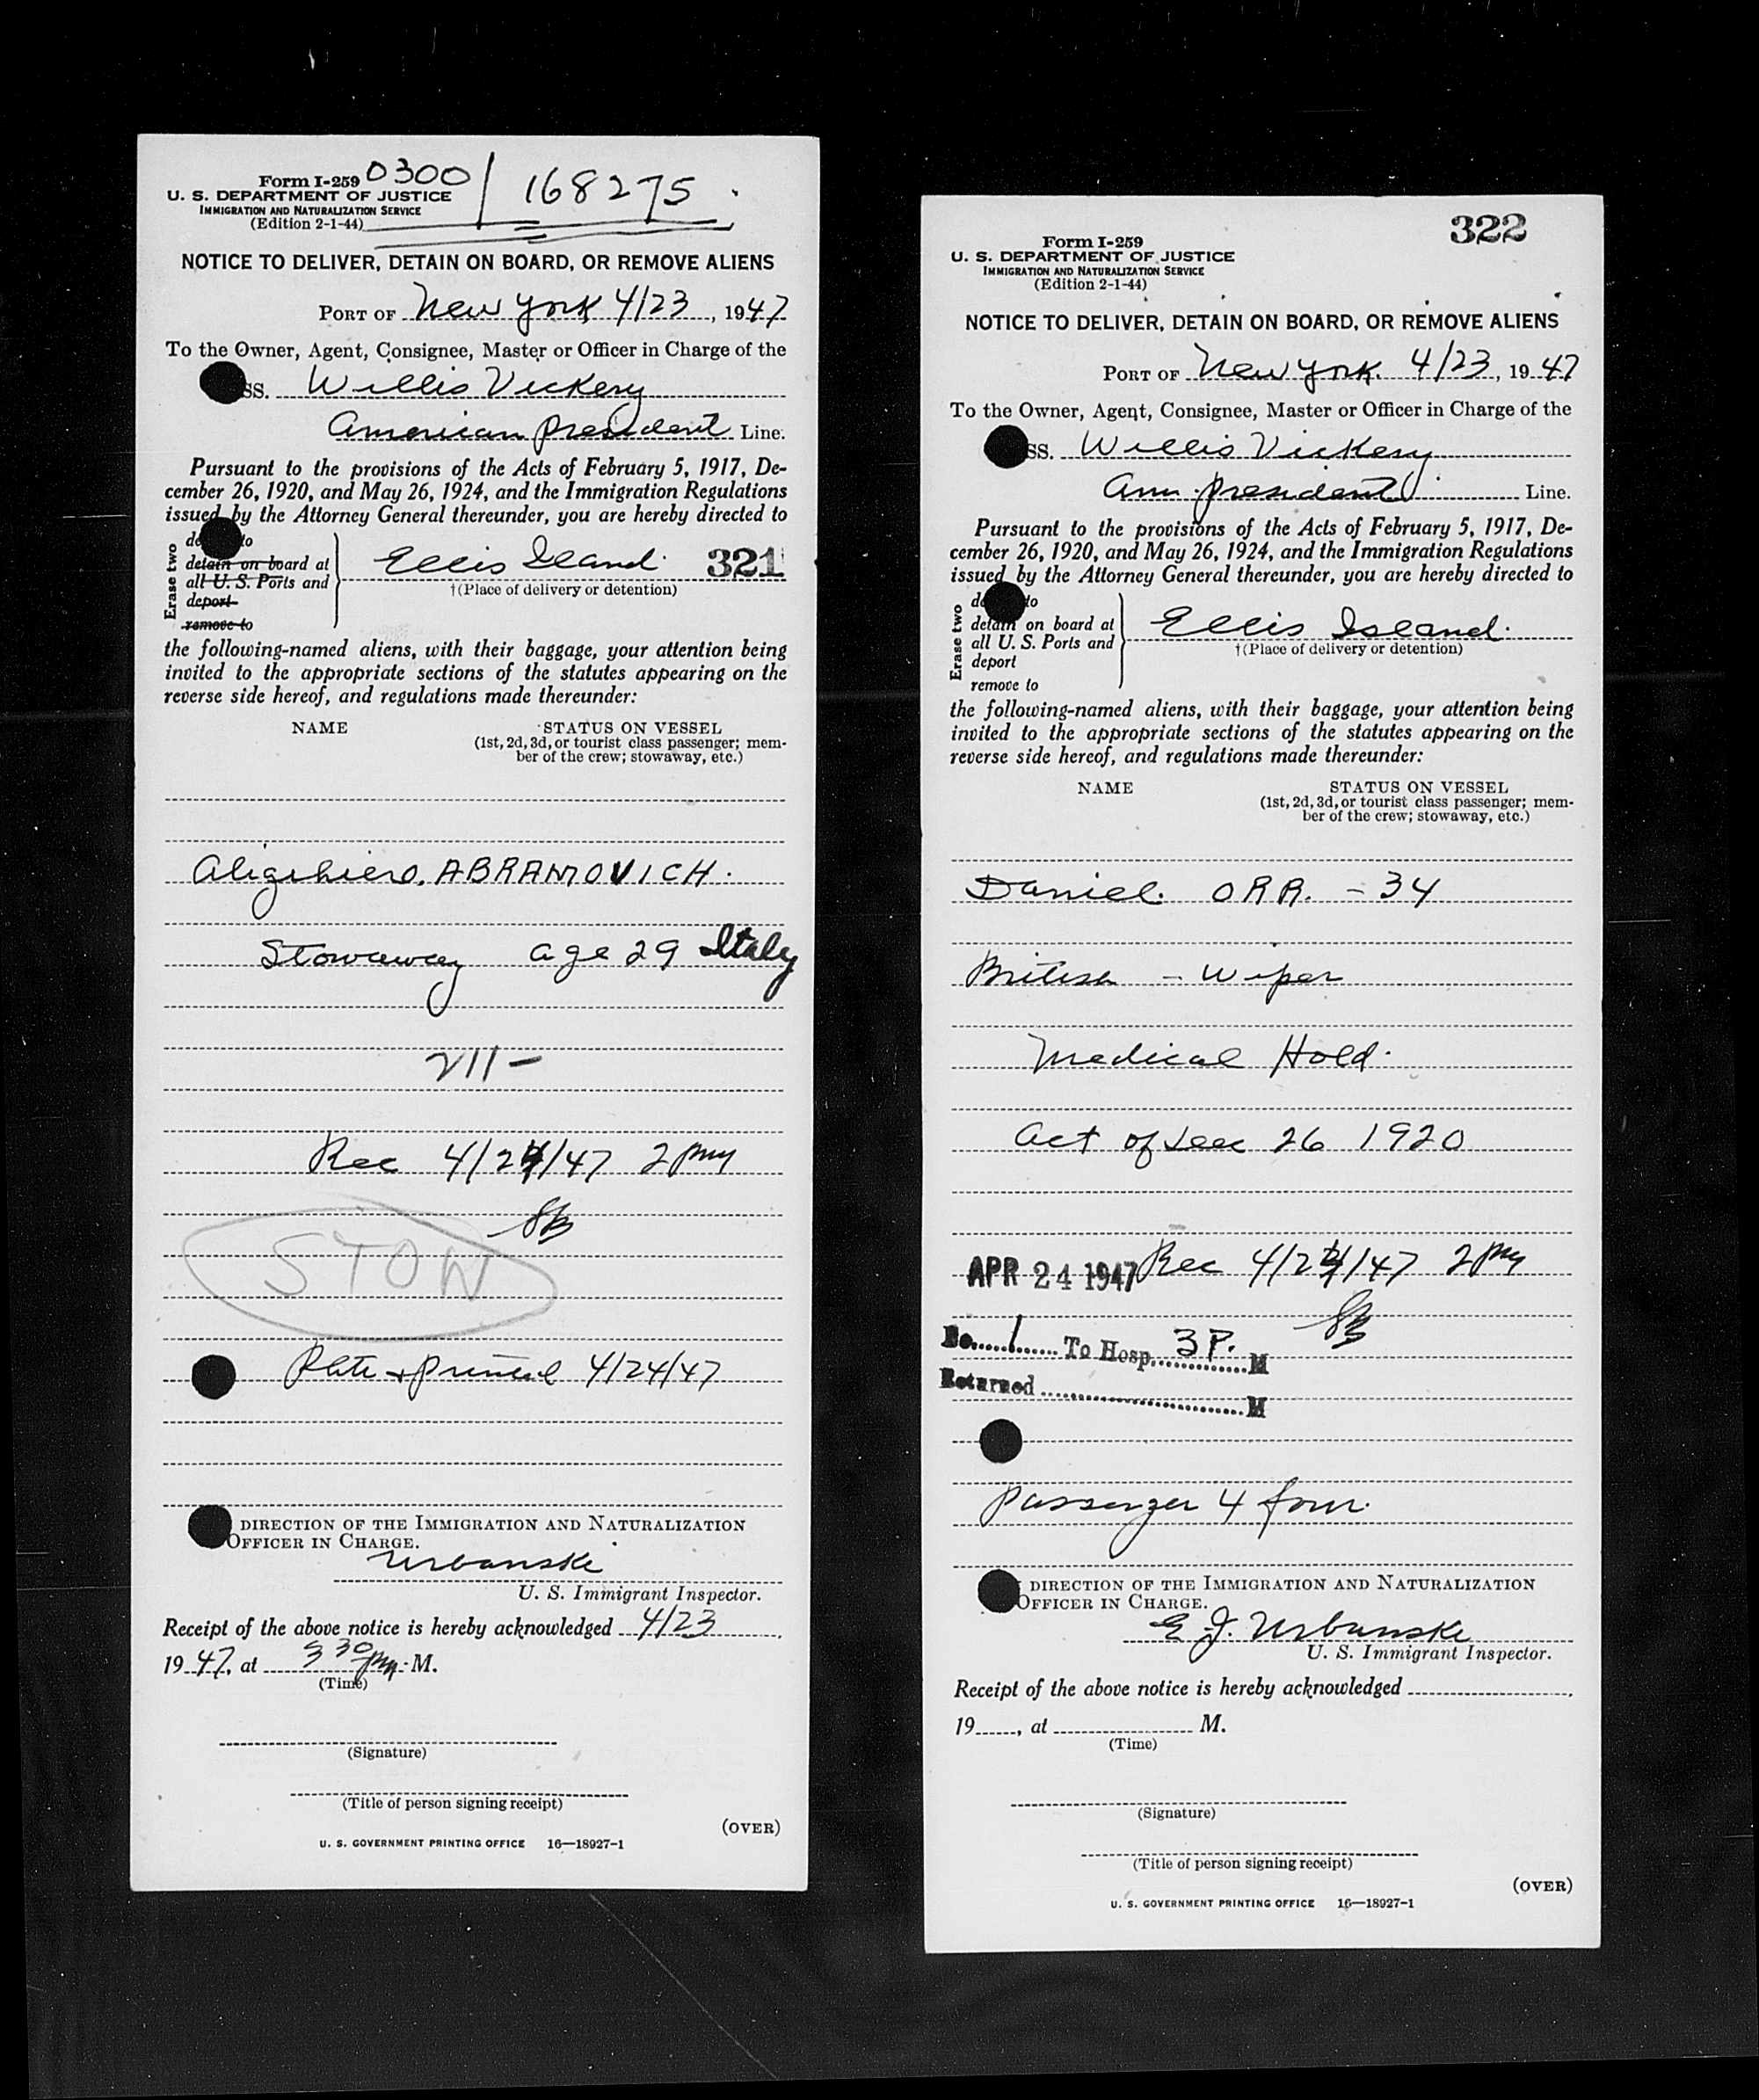 Form I-259 0300 / 168275
U. S. DEPARTMENT OF JUSTICE
IMMIGRATION AND NATURALIZATION SERVICE
(Edition 2-1-44)
NOTICE TO DELIVER, DETAIN ON BOARD, OR REMOVE ALIENS
PORT OF New York 4/23, 1947
To the Owner, Agent, Consignee, Master or Officer in Charge of the
SS. Willis Vickery
American President Line.
Pursuant to the provisions of the Acts of February 5, 1917, De-
cember 26, 1920, and May 26, 1924, and the Immigration Regulations
issued by the Attorney General thereunder, you are hereby directed to
Erase two
to
detain on board at
all U. S. Ports and
deport
remove to
Ellis Island 321
†(Place of delivery or detention)
the following-named aliens, with their baggage, your attention being
invited to the appropriate sections of the statutes appearing on the
reverse side hereof, and regulations made thereunder:
NAME STATUS ON VESSEL
(1st, 2d, 3d, or tourist class passenger; mem-
ber of the crew; stowaway, etc.)
Aligihiero. ABRAMOVICH.
Stowaway age 29 Italy
211-
Rec 4/24/47 2 pm
STOW
4/24/47
DIRECTION OF THE IMMIGRATION AND NATURALIZATION
OFFICER IN CHARGE.
Urbanski
U. S. Immigrant Inspector.
Receipt of the above notice is hereby acknowledged 4/23,
1947, at 3 30 pm M.
(Time)
(Signature)
(Title of person signing receipt)
(OVER)
U. S. GOVERNMENT PRINTING OFFICE 16—18927-1
322
Form I-259
U. S. DEPARTMENT OF JUSTICE
IMMIGRATION AND NATURALIZATION SERVICE
(Edition 2-1-44)
NOTICE TO DELIVER, DETAIN ON BOARD, OR REMOVE ALIENS
PORT OF New York. 4/23, 1947
To the Owner, Agent, Consignee, Master or Officer in Charge of the
SS. Willis Vickery
Am. President Line.
Pursuant to the provisions of the Acts of February 5, 1917, De-
cember 26, 1920, and May 26, 1924, and the Immigration Regulations
issued by the Attorney General thereunder, you are hereby directed to
Erase two
to
detain on board at
all U. S. Ports and
deport
remove to
Ellis Island.
†(Place of delivery or detention)
the following-named aliens, with their baggage, your attention being
invited to the appropriate sections of the statutes appearing on the
reverse side hereof, and regulations made thereunder:
NAME STATUS ON VESSEL
(1st, 2d, 3d, or tourist class passenger; mem-
ber of the crew; stowaway, etc.)
Daniel. ORR. - 34
British - Wiper
Medical Hold.
Act of Dec 26 1920
APR 24 1947 Rec 4/24/47 2 pm
No. 1 To Hosp. 3 P. M
Returned M
Passenger 4 four.
DIRECTION OF THE IMMIGRATION AND NATURALIZATION
OFFICER IN CHARGE.
E. J. Urbanski
U. S. Immigrant Inspector.
Receipt of the above notice is hereby acknowledged
19, at M.
(Time)
(Signature)
(Title of person signing receipt)
(OVER)
U. S. GOVERNMENT PRINTING OFFICE 16—18927-1